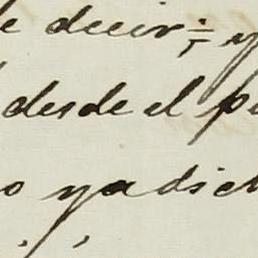 e decir; y
desde el p
o ya dich